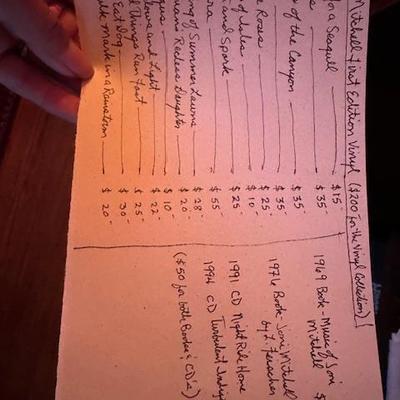 Mitchell First Edition Vinyl ($200 for the Vinyl Collection)!
a Seagull — $15-
s — $35-
of the Canyon — $35-
— $35-
e Roses — $25-
of Miles — $10-
and Spark — $25-
ra — $55
ng of Summer Lawns — $28-
uan's Reckless Daughter — $20-
gus — $10-
dows and Light — $22-
d Things Run Fast — $25-
Eat Dog — $30-
lk Mark in a Rainstorm — $20-
1969 Book - Music of Joni Mitchell $
1976 Book - Joni Mitchell
by L.
1991 CD Night Ride Home
1994 CD Turbulent Indig
($50 for both Books & CDs)